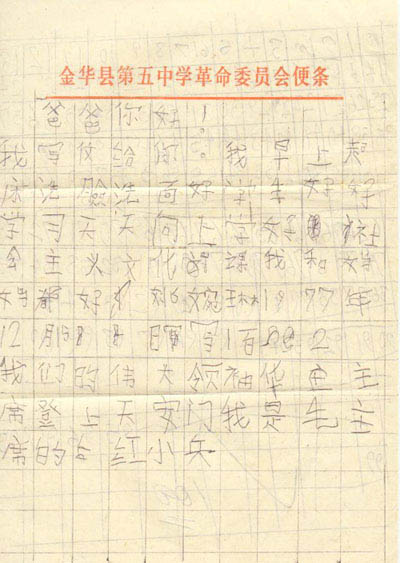 金华县第五中学革命委员会便条
爸爸你好！
我写信给你：我早上起
床洗脸洗 好 好好
学习天天向上学好 社
会主义文化 课我和
都好 1977年
12月 日 写1百
我们的伟大领袖华主主
席登上天安门我是毛主
席的 红小兵